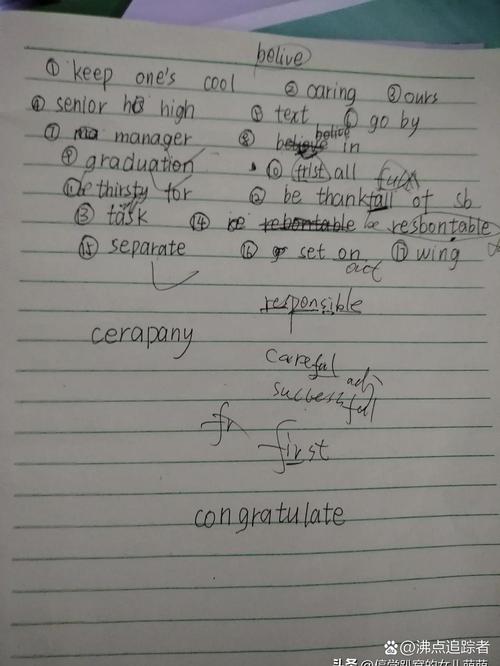 belive
① keep one's cool ② caring ③ ours
④ senior high ⑤ text ⑥ go by
⑦ manager ⑧ belive in
⑨ graduation ⑩ frist all full
⑪ be thirsty for ⑫ be thankfall of sb
⑬ task ⑭ be resbontable
⑮ separate ⑯ set on ⑰ wing
act
responsible
cerapany
careful
successful adj
fr
first
congratulate
@沸点追踪者
头条 @停学趴窝的女儿萌萌